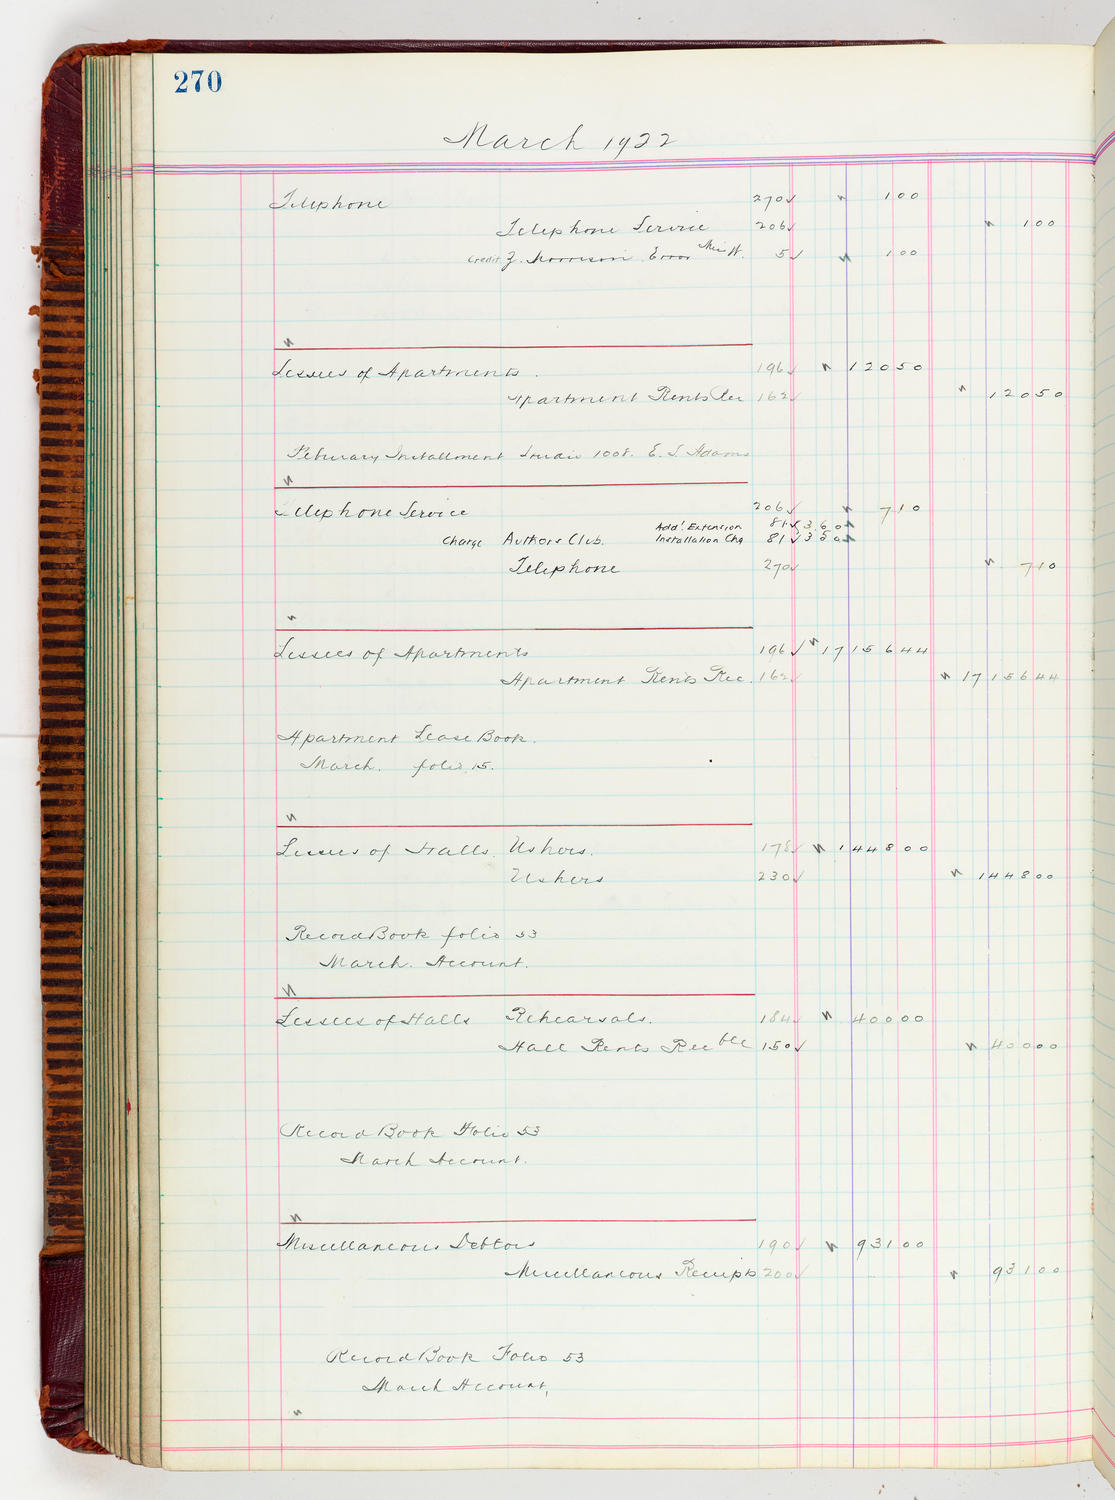 270
March 1922
Telephone 270✓ 1 00
Telephone Service 206✓ 1 00
Credit J. Morrison Error 5✓ 1 00
Lessees of Apartments. 196✓ 120 50
Apartment Rents Rec 162✓ 120 50
February Installment Studio 1008. E. S. Adams
Telephone Service 206✓ 7 10
Add'l. Extension 81✓ 3 60
Charge Authors Club. Installation Chg 81✓ 3 50
Telephone 270✓ 7 10
Lessees of Apartments 196✓ 17156 44
Apartment Rents Rec. 162✓ 17156 44
Apartment Lease Book.
March. folio 15.
Lessees of Halls. Ushers. 178✓ 1448 00
Ushers 230✓ 1448 00
Record Book folio 53
March. Account.
Lessees of Halls Rehearsals. 184✓ 400 00
Hall Rents Rec ble 150✓ 400 00
Record Book Folio 53
March Account.
Miscellaneous Debtors 190✓ 931 00
Miscellaneous Receipts 200✓ 931 00
Record Book Folio 53
March Account,